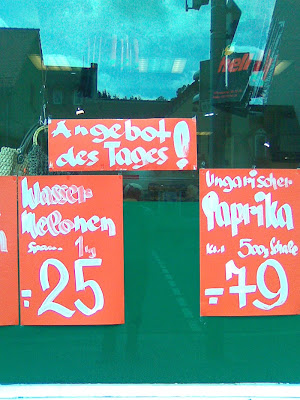 Angebot
des Tages!
Wasser-
Melonen
Span. 1kg
-.25
Ungarischer
Paprika
500g Schale
-.79